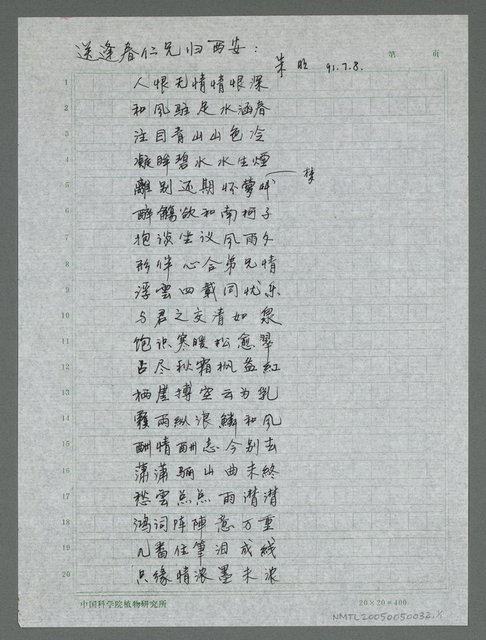 送逢春仁兄归西安：
朱 91.7.8.
第 页
人恨无情情恨深
和风驻足水涵春
注目青山山色冷
凝眸碧水水生煙
離别还期怀
醉觴欲和南柯子
抱谈坐议风雨夕
形伴心合弟兄情
浮雲四載同忧乐
与君之交清如泉
饱识寒暖松愈翠
占尽秋霜枫益紅
栖崖搏空云为乳
雨纵浪鳞和风
酬情酬志今别去
瀟瀟骊山曲未終
愁雲点点雨潸潸
鸿词阵陣意万重
几番住筆泪成线
只缘情浓墨未浓
1
2
3
4
5
6
7
8
9
10
11
12
13
14
15
16
17
18
19
20
中国科学院植物研究所
20×20=400
NMTL20050050032.1/1